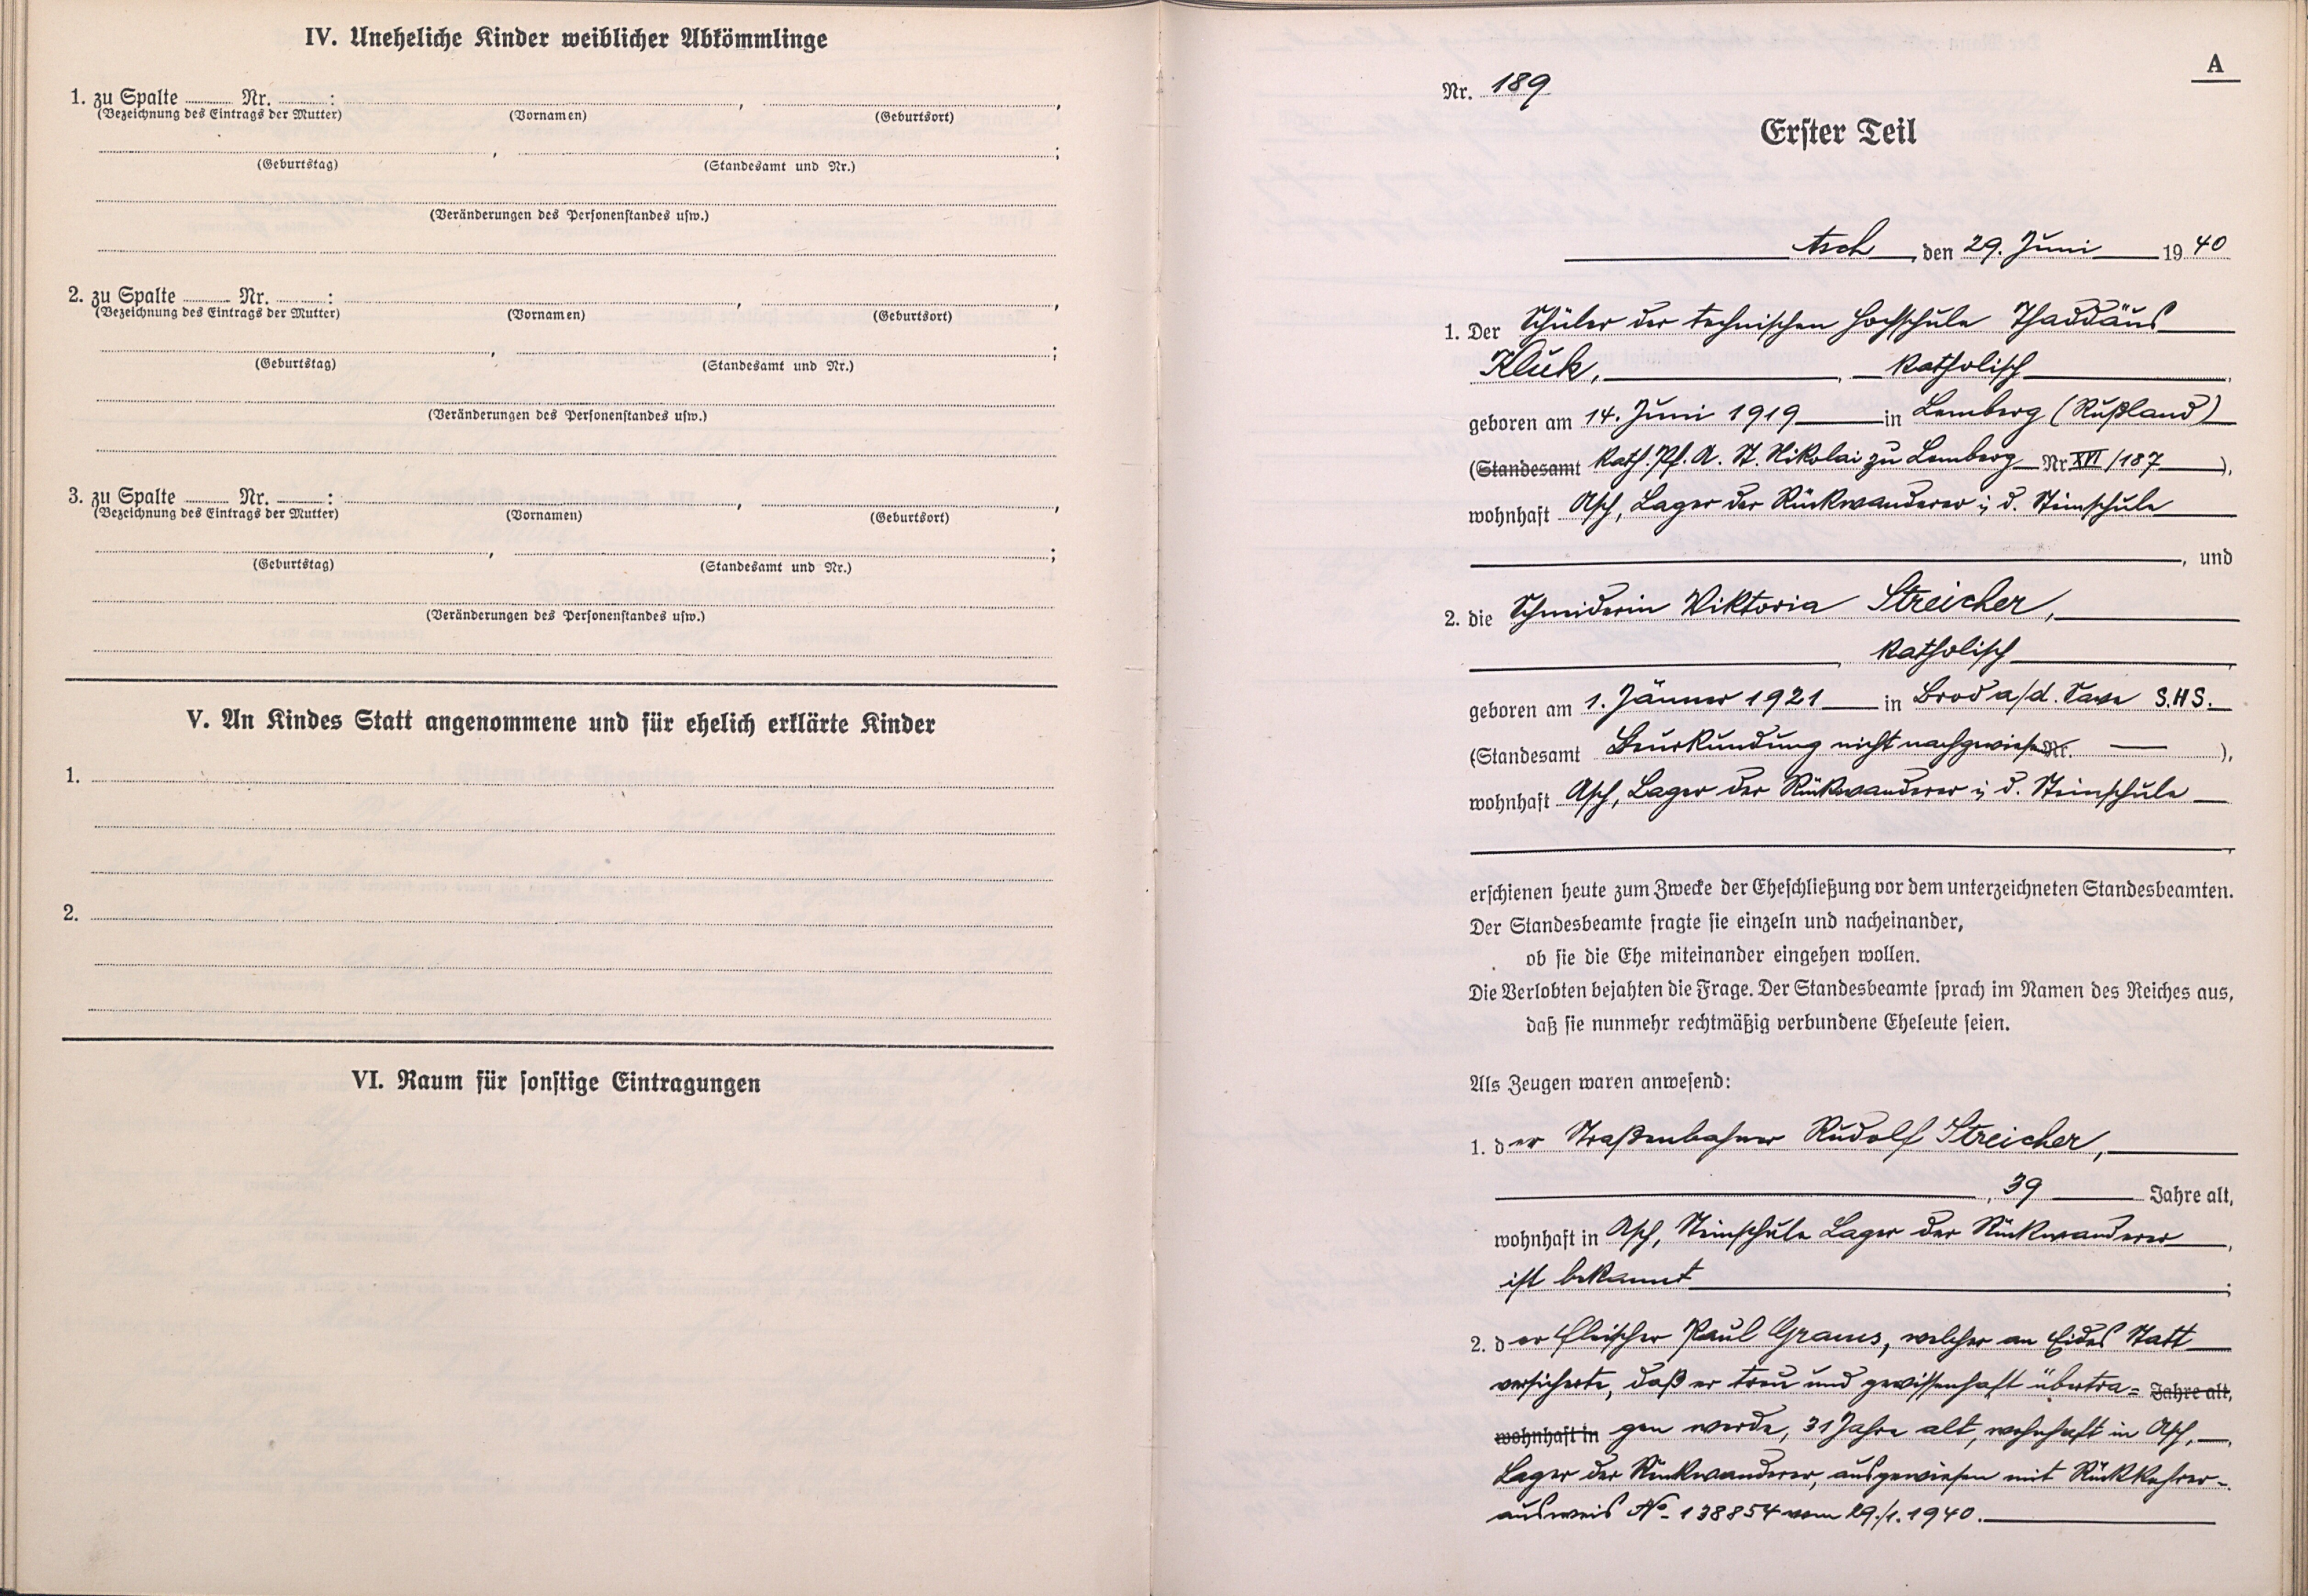 IV. Uneheliche Kinder weiblicher Abkömmlinge
1. zu Spalte ........ Nr. ........ : , ,
(Bezeichnung des Eintrags der Mutter) (Vornamen) (Geburtsort)
, ;
(Geburtstag) (Standesamt und Nr.)
(Veränderungen des Personenstandes usw.)
2. zu Spalte ........ Nr. ........ : , ,
(Bezeichnung des Eintrags der Mutter) (Vornamen) (Geburtsort)
, ;
(Geburtstag) (Standesamt und Nr.)
(Veränderungen des Personenstandes usw.)
3. zu Spalte ........ Nr. ........ : , ,
(Bezeichnung des Eintrags der Mutter) (Vornamen) (Geburtsort)
, ;
(Geburtstag) (Standesamt und Nr.)
(Veränderungen des Personenstandes usw.)
V. An Kindes Statt angenommene und für ehelich erklärte Kinder
1.
2.
VI. Raum für sonstige Eintragungen
A
Nr. 189
Erster Teil
Asch, den 29. Juni 1940
1. Der Schüler der technischen Hochschule Thaddäus
Kluk, , katholisch,
geboren am 14. Juni 1919 in Lemberg (Rußland)
(Standesamt Kath. Pf. A. St. Nikolai zu Lemberg Nr XVI/187 ),
wohnhaft Asch, Lager der Rückwanderer i. d. Steinschule
, und
2. die Schneiderin Wiktoria Streicher,
, katholisch,
geboren am 1. Jänner 1921 in Brod a/d. Save S.H.S.
(Standesamt Beurkundung nicht nachgewiesen Nr. — ),
wohnhaft Asch, Lager der Rückwanderer i. d. Steinschule
,
erschienen heute zum Zwecke der Eheschließung vor dem unterzeichneten Standesbeamten.
Der Standesbeamte fragte sie einzeln und nacheinander,
ob sie die Ehe miteinander eingehen wollen.
Die Verlobten bejahten die Frage. Der Standesbeamte sprach im Namen des Reiches aus,
daß sie nunmehr rechtmäßig verbundene Eheleute seien.
Als Zeugen waren anwesend:
1. der Straßenbahner Rudolf Streicher,
, 39 Jahre alt,
wohnhaft in Asch, Steinschule Lager der Rückwanderer,
ist bekannt ;
2. der Fleischer Paul Graus, welcher an Eides Statt
versicherte, daß er treu und gewissenhaft übertra= Jahre alt,
wohnhaft in gen werde, 31 Jahre alt, wohnhaft in Asch,
Lager der Rückwanderer, ausgewiesen mit Rückkehrer-
ausweis No 138854 vom 29./1. 1940.